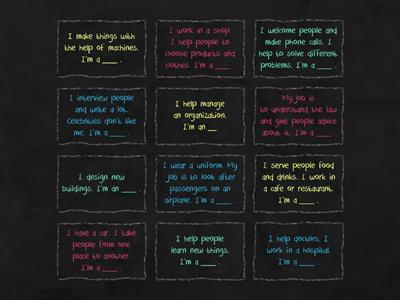 I make things with
the help of machines.
I'm a ____ .
I work in a shop.
I help people to
choose products and
clothes. I'm a ____ .
I welcome people and
make phone calls. I
help to solve different
problems. I'm a ____ .
I interview people
and write a lot.
Celebrities don't like
me. I'm a ____ .
I help manage
an organization.
I'm an __
My job is
to understand the law
and give people advice
about it. I'm a ____ .
I design new
buildings. I'm an ____ .
I wear a uniform. My
job is to look after
passengers on an
airplane. I'm a ____ .
I serve people food
and drinks. I work in
a cafe or restaurant.
I'm a ____ .
I have a car. I take
people from one
place to another.
I'm a ____ .
I help people
learn new things.
I'm a ____ .
I help doctors. I
work in a hospital.
I'm a ____ .